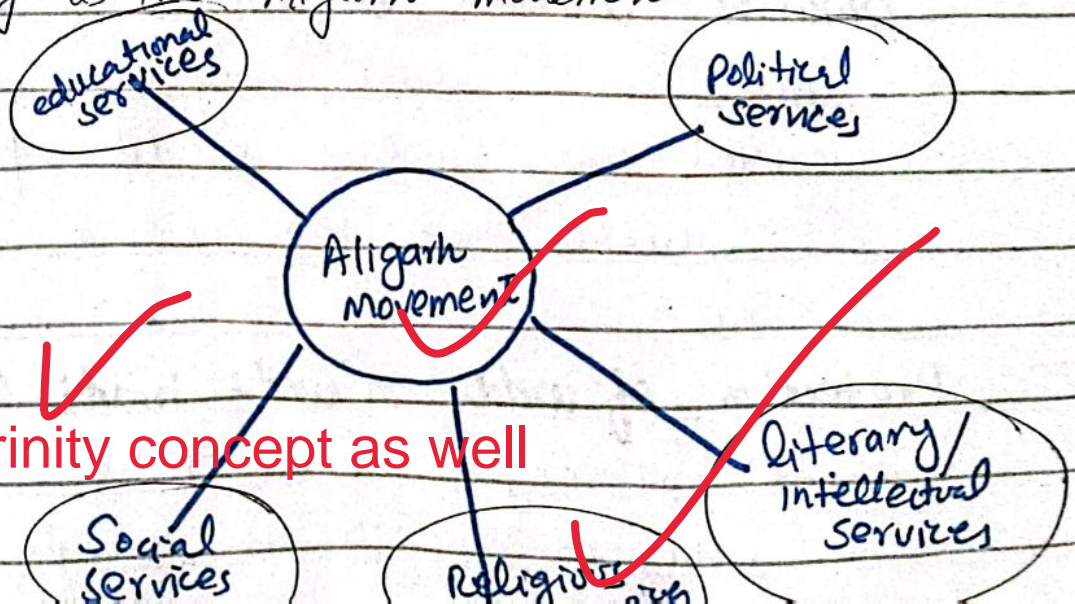 as the Aligarh Movement
educational
services
Political
services
Aligarh
Movement
rinity concept as well
literary/
intellectual
services
Social
services
Religious